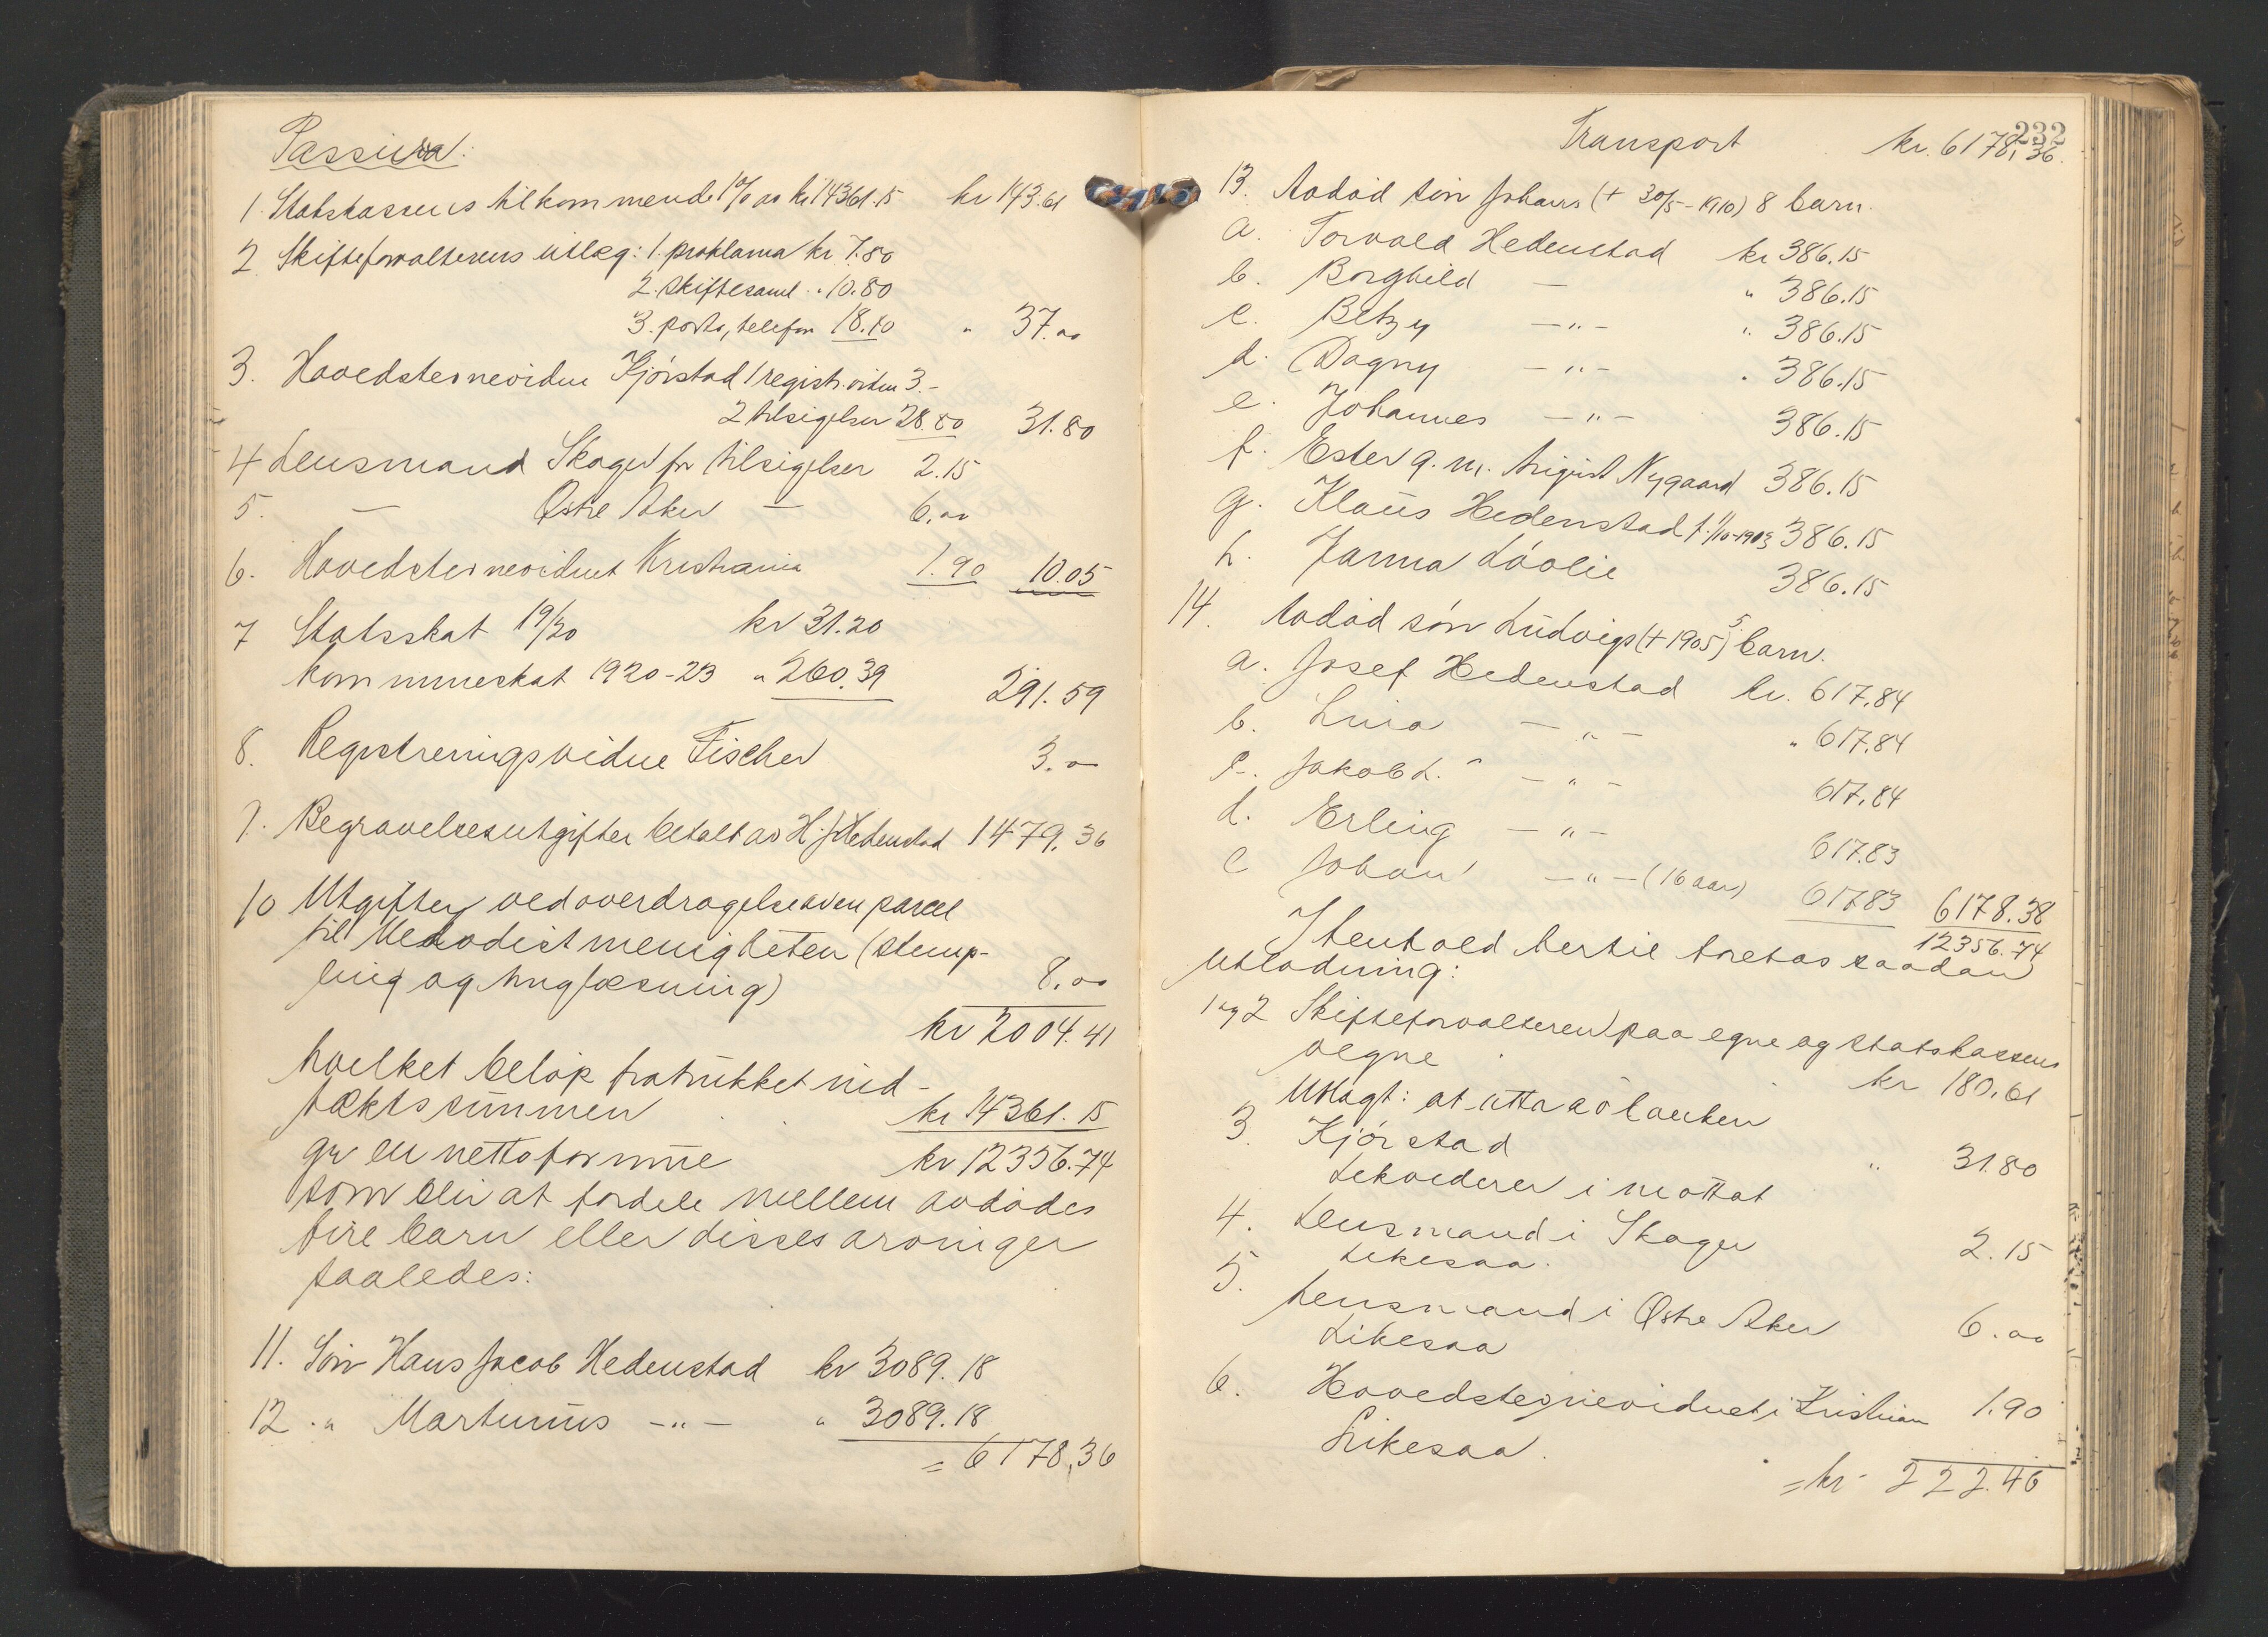 Passiva:
1. Statskassens tilkommende 1% av kr 14361.15 kr 143.61
2. Skifteforvalterens utlæg: 1. proklama kr 7.80
2. skiftesaml. " 10.80
3. porto, telefon 18.40 " 37.00
3. Hovedstevnevidne Kjörstad 1 registr. vidne 3.-
2 tilsigelser 28.80 31.80
4 Lensmand Skoger for tilsigelser 2.15
5. — Østre Aker — 6.00
6. Hovedstevnevidnet Kristiania 1.90 10.05
7 Statsskat 19/20 kr 31.20
Kommuneskat 1920-23 " 260.39 291.59
8. Registreringsvidne Fischer 3.00
9. Begravelsesutgifter betalt av H. J. Hedenstad 1479.36
10 Utgifter ved overdragelse av en parcel
til Metodistmenigheten (stemp-
ling og tinglæsning) 8.00
kr 2004.41
hvilket beløp fratrukket ind-
tæktssummen kr 14361.15
gir en nettoformue kr 12356.74
som blir at fordele mellem avdödes
fire barn eller disses arvinger
saaledes:
11. Sön Hans Jacob Hedenstad kr 3089.18
12 " Martinius —"— " 3089.18
= 6178.36
232
Transport kr. 6178.36.
13. Avdöd sön Johans (+ 30/5-1910) 8 barn.
a. Torvald Hedenstad kr 386.15
b. Borghild — " 386.15
c. Betzy —"— " 386.15
d. Dagny —"— " 386.15
e. Johannes —"— 386.15
f. Ester g. m. August Nygaard 386.15
g. Klaus Hedenstad f. 1/10-1903 386.15
h. Janna Lövlie 386.15
14. Avdöd sön Ludvigs (+ 1905) 5 barn.
a. Josef Hedenstad kr. 617.84
b. Livia —"— " 617.84
c. Jakob L. —"— 617.84
d. Erling —"— 617.83
e Johan —"— (16 aar) 617.83 6178.38
12356.74
I henhold hertil foretas saadan
Utlodning:
1 og 2 Skifteforvalteren paa egne og statskassens
vegne kr 180.61
Utlagt: at utta av banken
3. Kjörstad " 31.80
Lekvederer i mottat
4. Lensmand i Skoger 2.15
Likesaa.
5. Lensmand i Østre Aker 6.00
Likesaa
6. Hovedstevnevidnet i Kristiania 1.90
Likesaa.
= kr 222.46